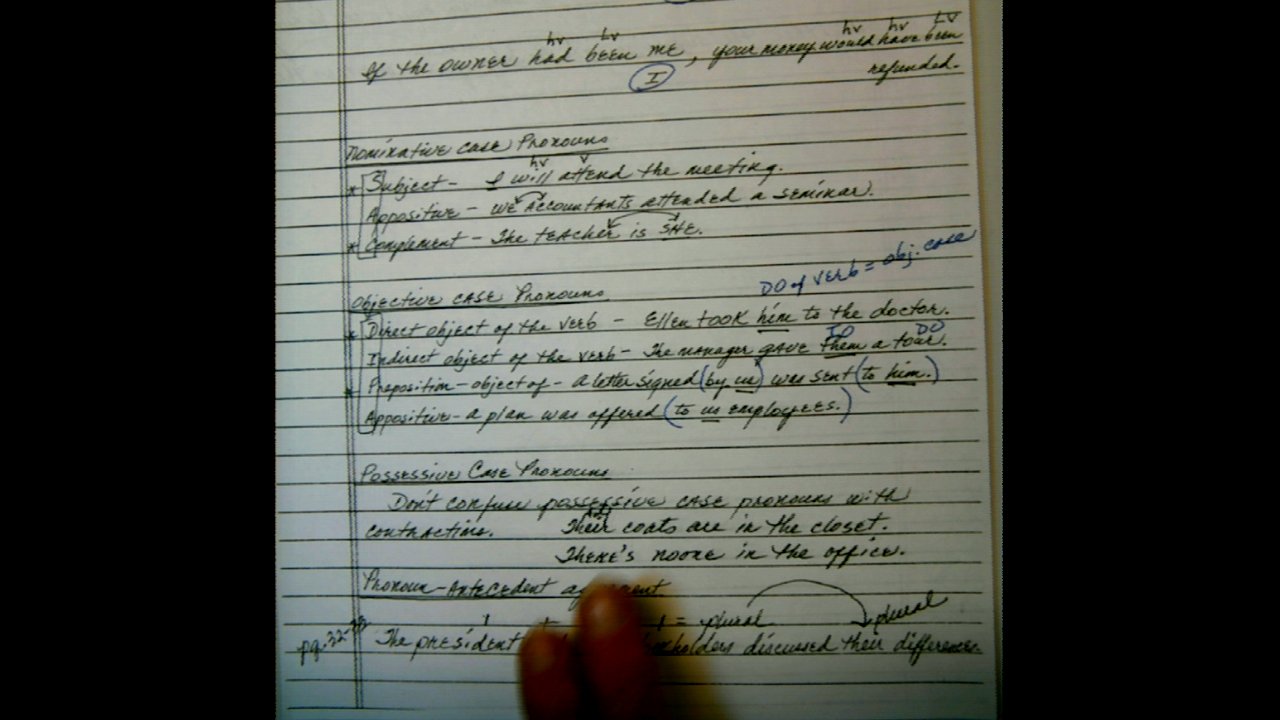 hv hv hv hv hv
If the owner had been me, your money would have been
I refunded.
Nominative Case Pronouns
hv v
* Subject - I will attend the meeting.
Appositive - we accountants attended a seminar.
* Complement - The teacher is SHE.
DO of verb = obj. case
Objective Case Pronouns
* Direct object of the verb - Ellen took him to the doctor.
IO DO
Indirect object of the verb - The manager gave them a tour.
* Preposition - object of - a letter signed (by us) was sent (to him.)
Appositive - a plan was offered (to us employees.)
Possessive Case Pronouns
Don't confuse possessive case pronouns with
contractions. Their coats are in the closet.
There's noone in the office.
Pronoun-Antecedent
= plural plural
pg. 32- The president discussed their differences.